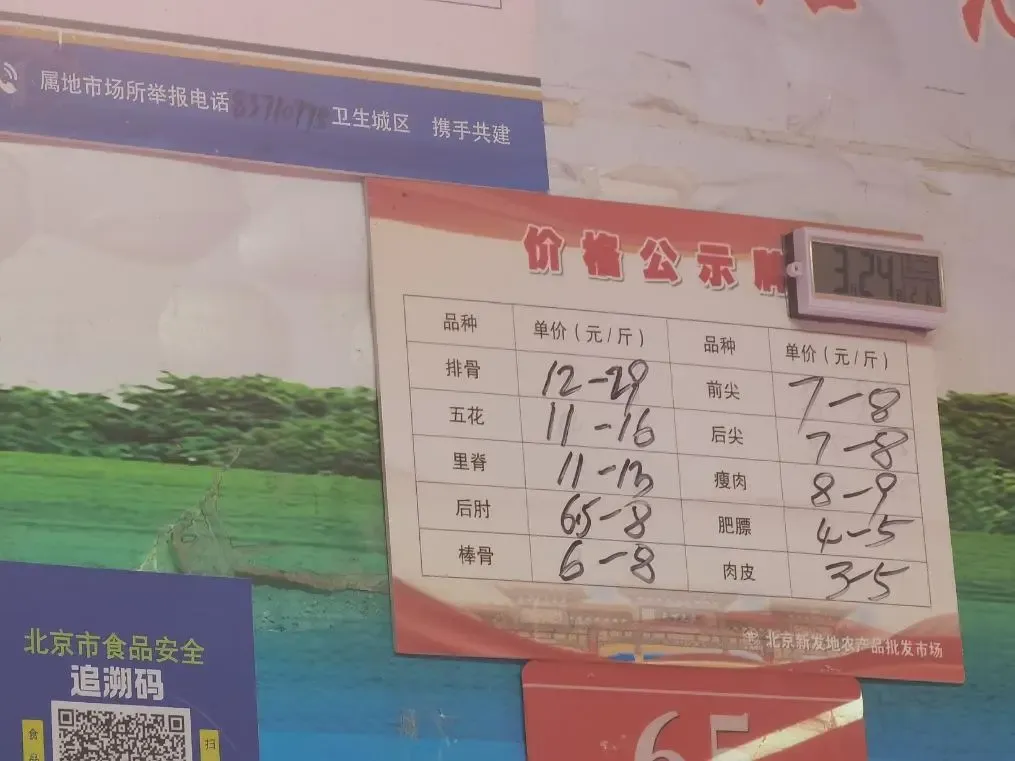 属地市场所举报电话 83710775 卫生城区 携手共建
价格公示牌
3 24
品种 单价(元/斤) 品种 单价(元/斤)
排骨 12-29 前尖 7-8
五花 11-16 后尖 7-8
里脊 11-13 瘦肉 8-9
后肘 6.5-8 肥膘 4-5
棒骨 6-8 肉皮 3-5
北京新发地农产品批发市场
北京市食品安全
追溯码
食品
扫
65